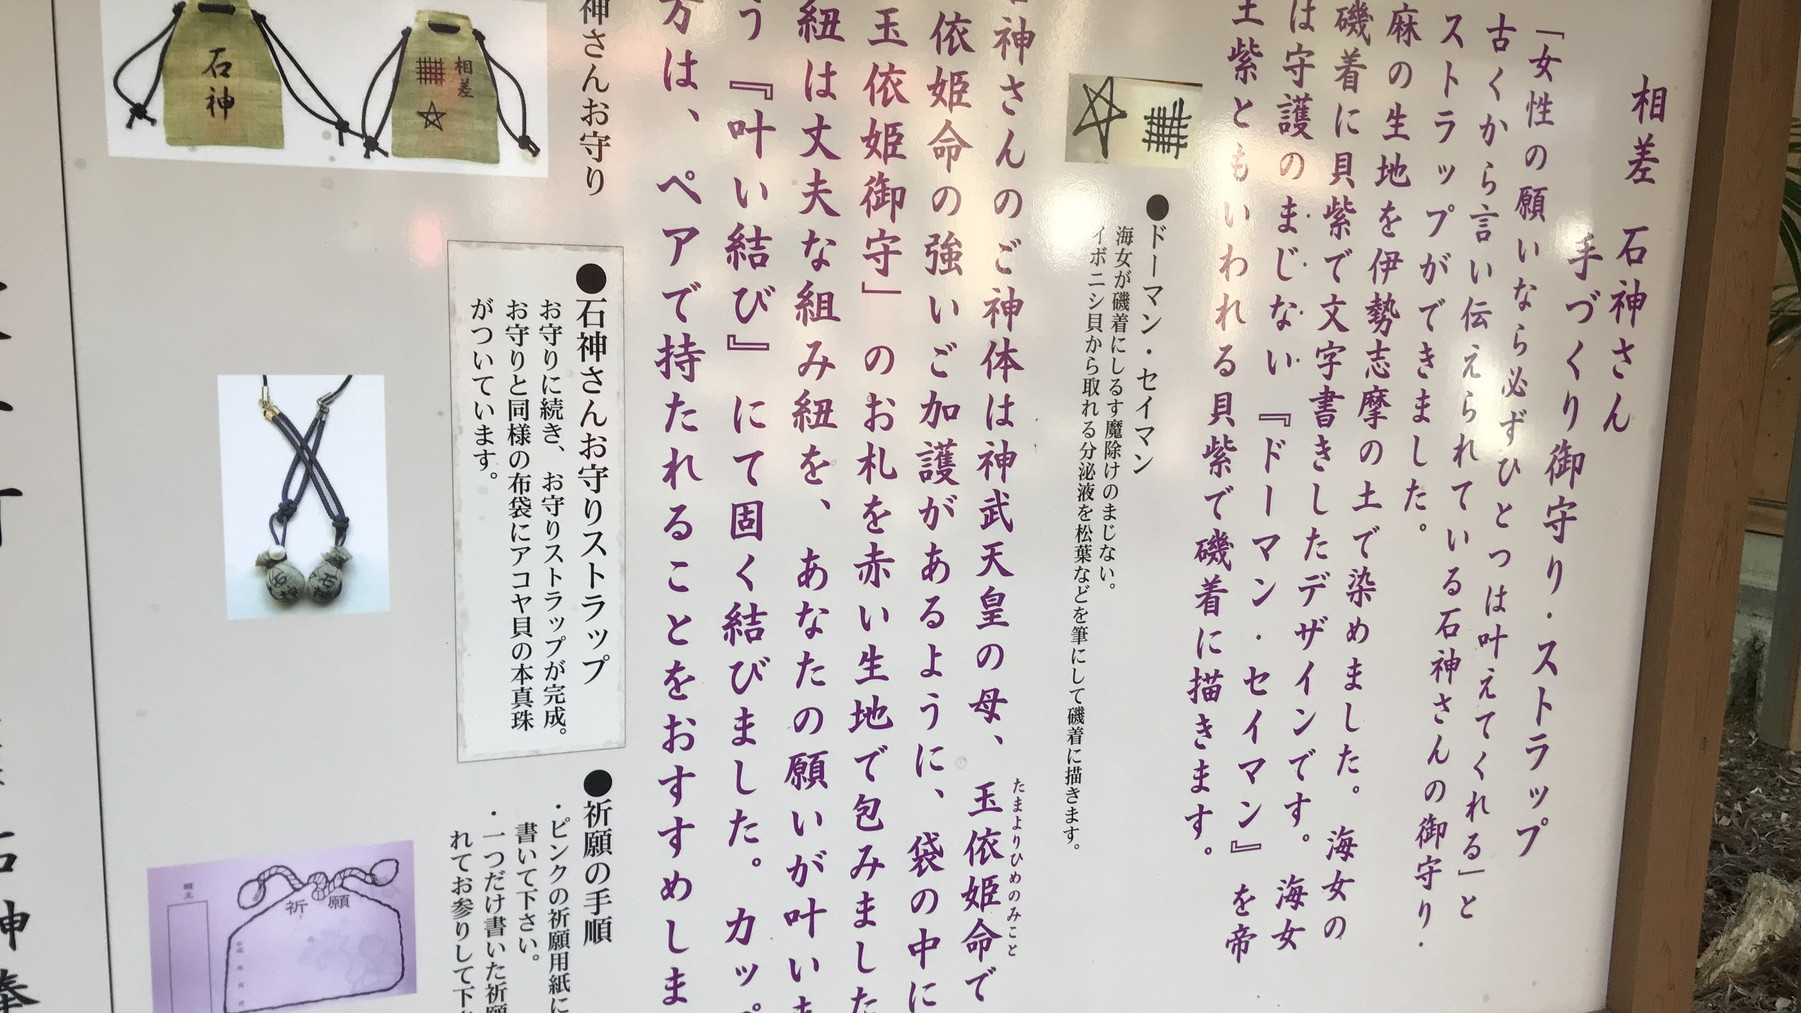 相差 石神さん
手づくり御守り・ストラップ
「女性の願いなら必ずひとつは叶えてくれる」と
古くから言い伝えられている石神さんの御守り・
ストラップができました。
麻の生地を伊勢志摩の土で染めました。海女の
磯着に貝紫で文字書きしたデザインです。海女
は守護のまじない『ドーマン・セイマン』を帝
王紫ともいわれる貝紫で磯着に描きます。
●ドーマン・セイマン
海女が磯着にしるす魔除けのまじない。
イボニシ貝から取れる分泌液を松葉などを筆にして磯着に描きます。
石神さんのご神体は神武天皇の母、玉依姫命で
たまよりひめのみこと
依姫命の強いご加護があるように、袋の中に
玉依姫御守」のお札を赤い生地で包みました
紐は丈夫な組み紐を、あなたの願いが叶いま
う『叶い結び』にて固く結びました。カップ
方は、ペアで持たれることをおすすめしま
神さんお守り
石神
相差
●石神さんお守りストラップ
お守りに続き、お守りストラップが完成。
お守りと同様の布袋にアコヤ貝の本真珠
がついています。
●祈願の手順
・ピンクの祈願用紙に
書いて下さい。
・一つだけ書いた祈願
れてお参りして下
祈願
願主
石神